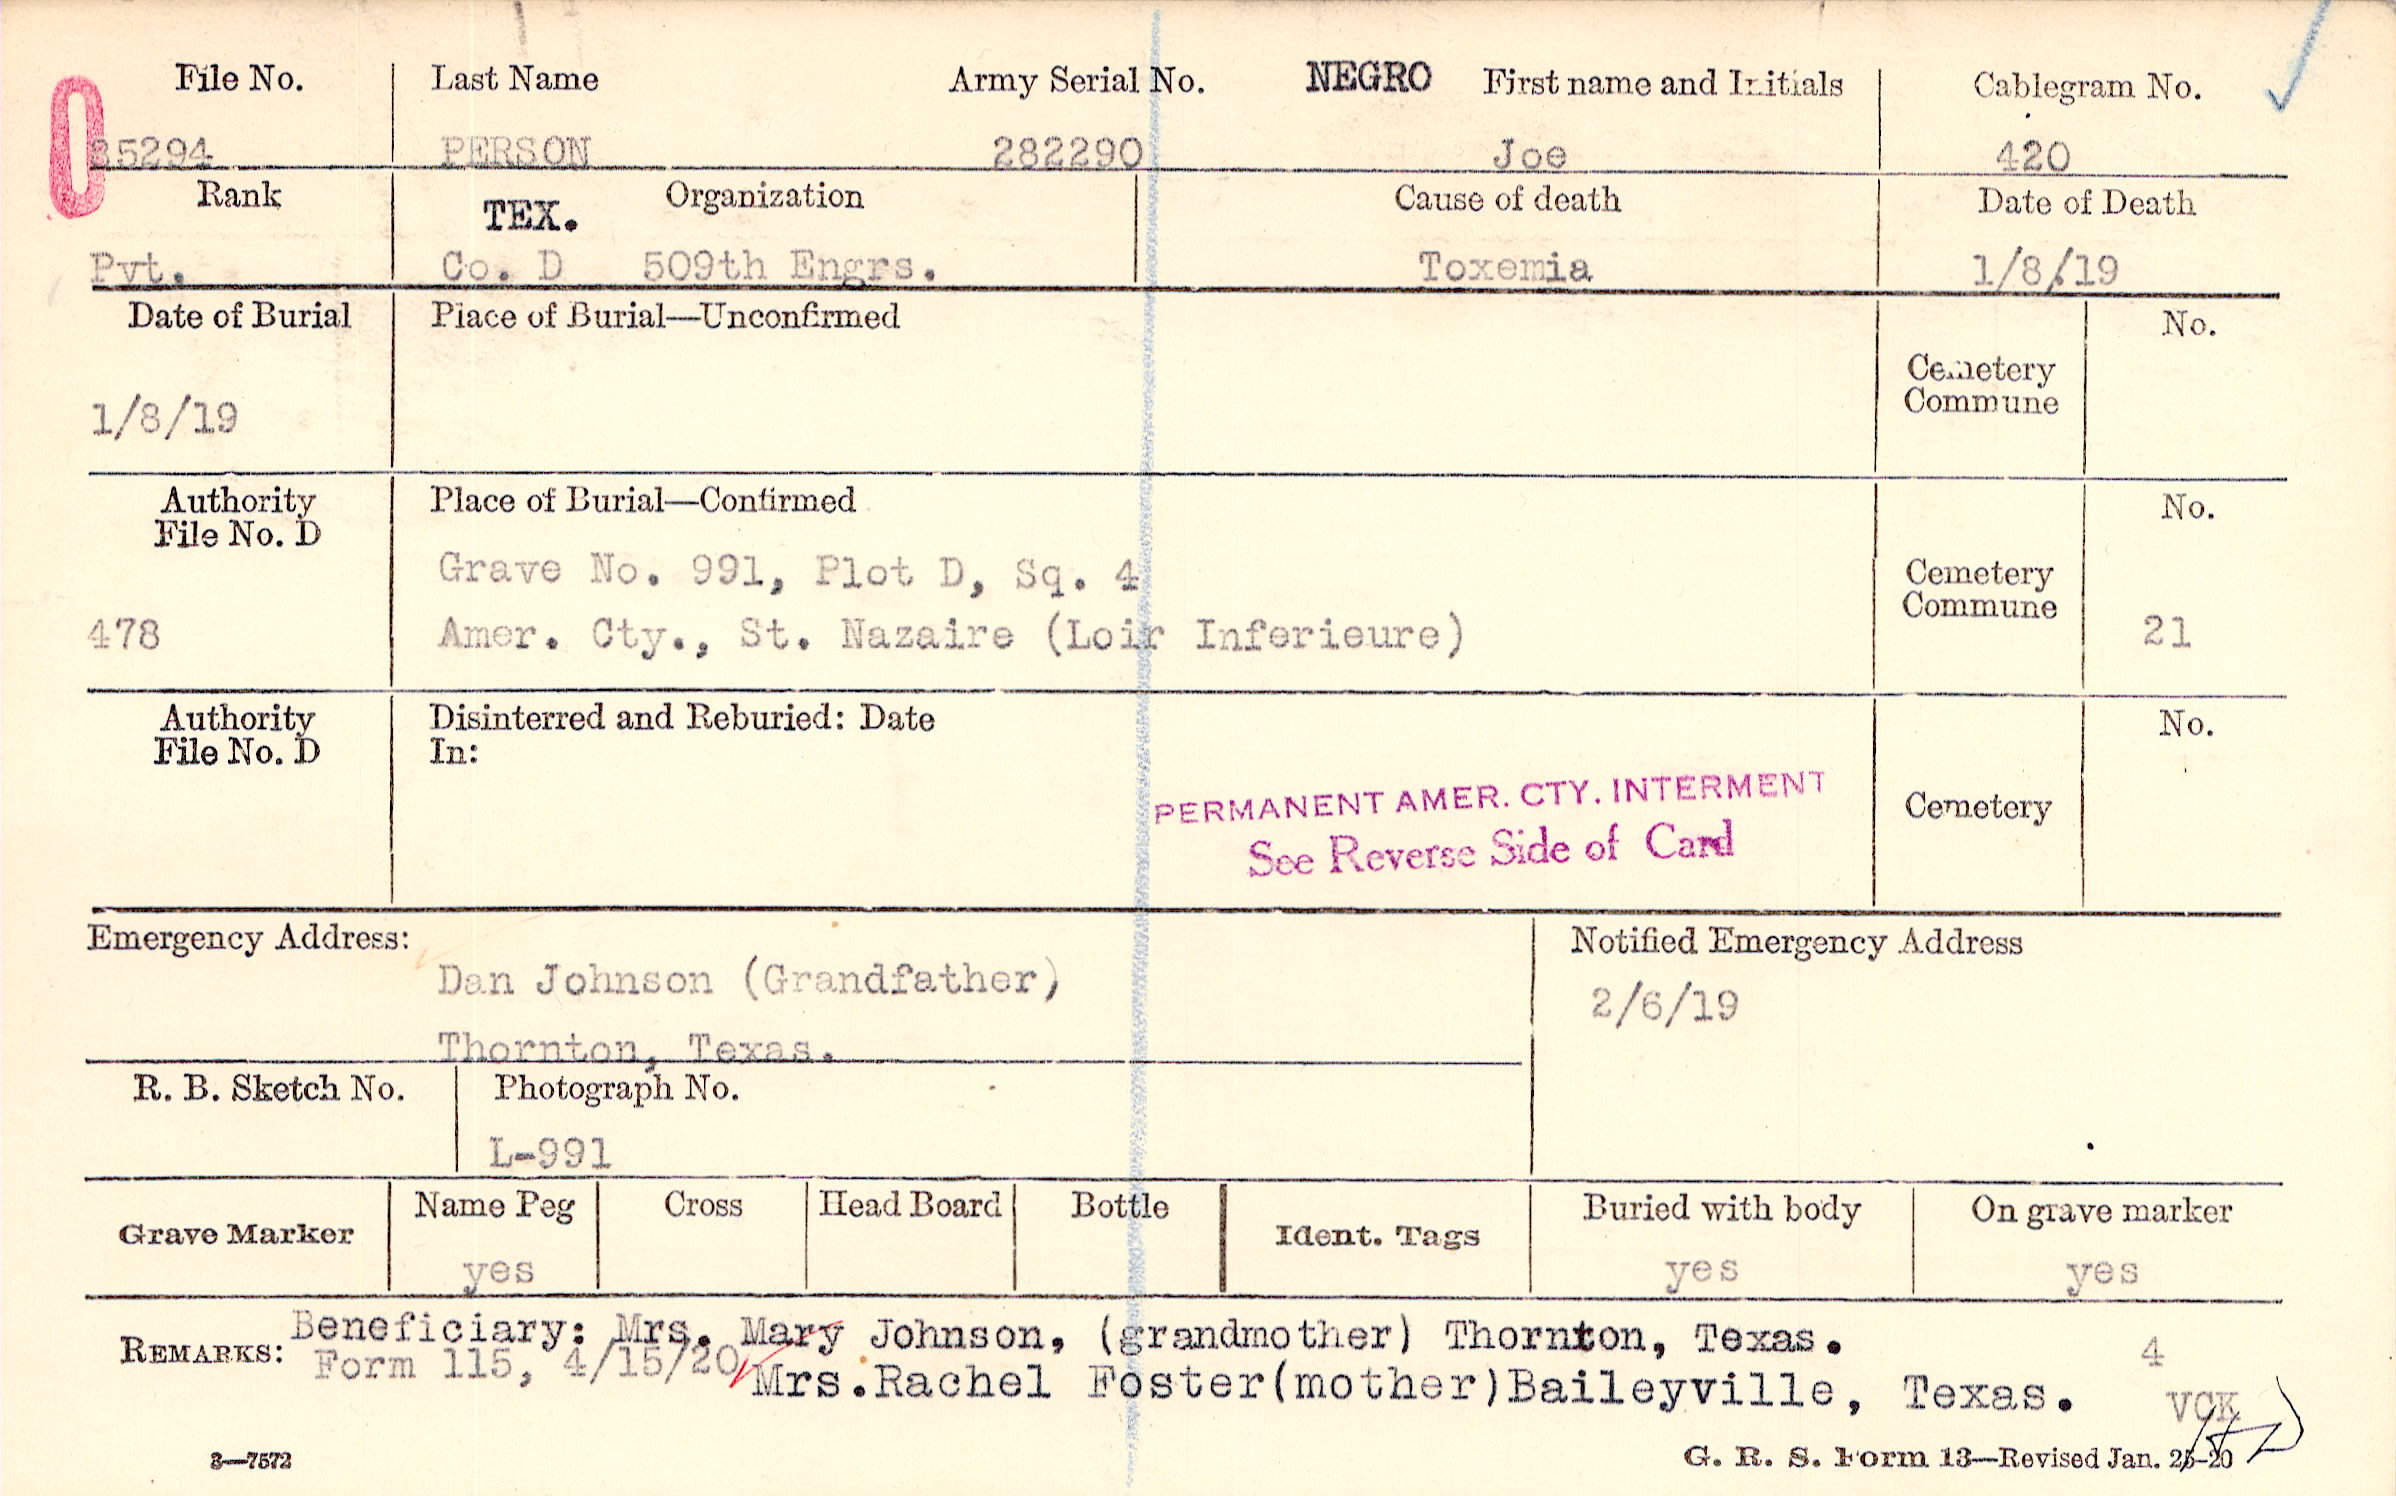 File No. Last Name Army Serial No. NEGRO First name and Initials Cablegram No.
0
35294 PERSON 282290 Joe 420
Rank TEX. Organization Cause of death Date of Death
Pvt. Co. D 509th Engrs. Toxemia 1/8/19
Date of Burial Place of Burial—Unconfirmed No.
Cemetery
Commune
1/8/19
Authority Place of Burial—Confirmed No.
File No. D
Grave No. 991, Plot D, Sq. 4 Cemetery
Commune
478 Amer. Cty., St. Nazaire (Loir Inferieure) 21
Authority Disinterred and Reburied: Date No.
File No. D In:
PERMANENT AMER. CTY. INTERMENT Cemetery
See Reverse Side of Card
Emergency Address: Notified Emergency Address
Dan Johnson (Grandfather) 2/6/19
Thornton, Texas.
R. B. Sketch No. Photograph No.
L-991
Grave Marker Name Peg Cross Head Board Bottle Ident. Tags Buried with body On grave marker
yes yes yes
REMARKS: Beneficiary: Mrs. Mary Johnson, (grandmother) Thornton, Texas. 4
Form 115, 4/15/20 Mrs.Rachel Foster(mother)Baileyville, Texas. VCK
3—7572 G. R. S. Form 13—Revised Jan. 25-20